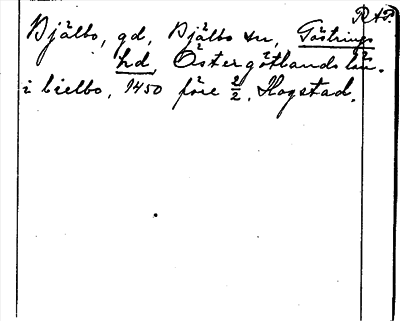 RAP.
Bjälbo, gd, Bjälbo sn, Göstrings
hd, Östergötlands län.
i bielbo, 1450 före 2/2. Hogstad.